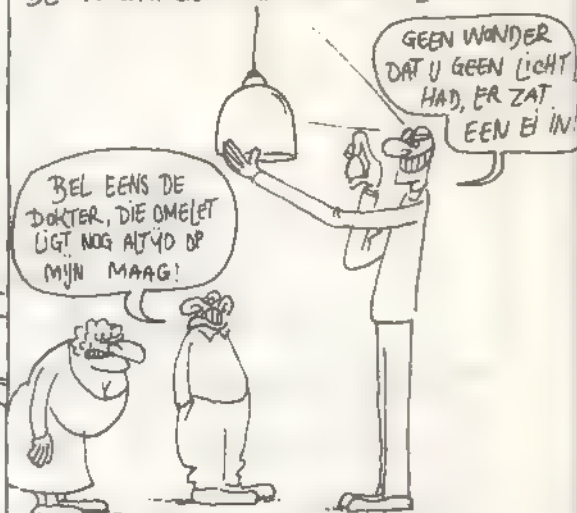 GEEN WONDER
DAT U GEEN LICHT
HAD, ER ZAT
EEN EI IN!
BEL EENS DE
DOKTER, DIE OMELET
LIGT NOG ALTYD OP
MIJN MAAG!